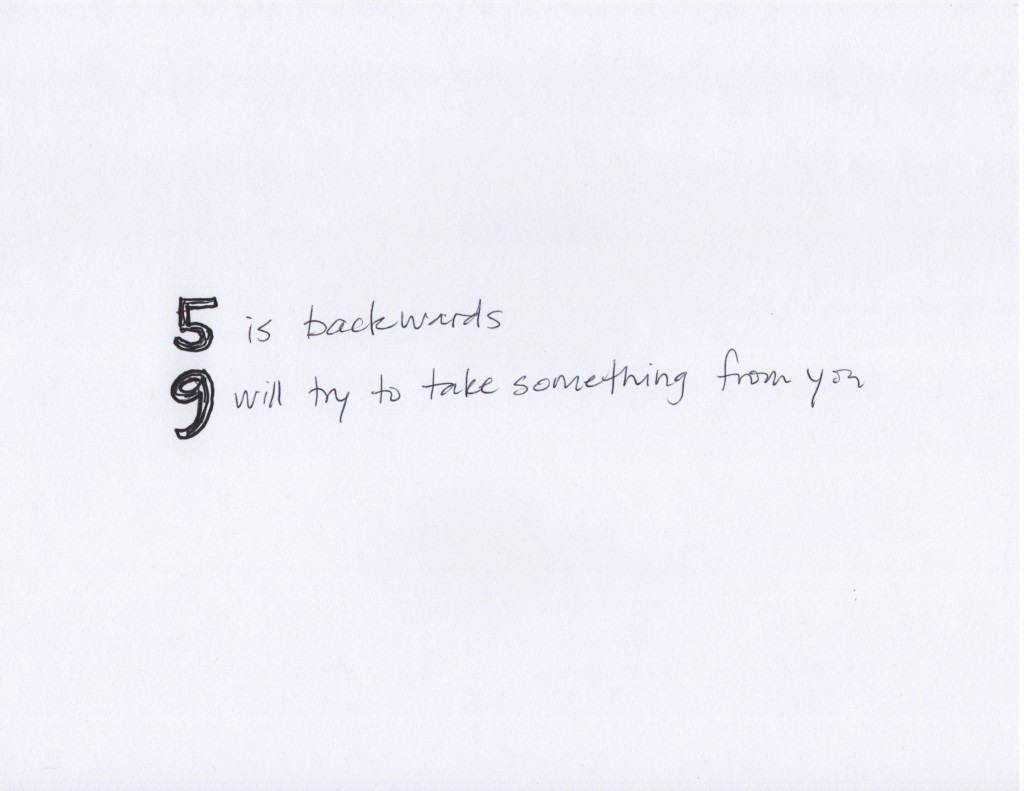 5 is backwards
9 will try to take something from you